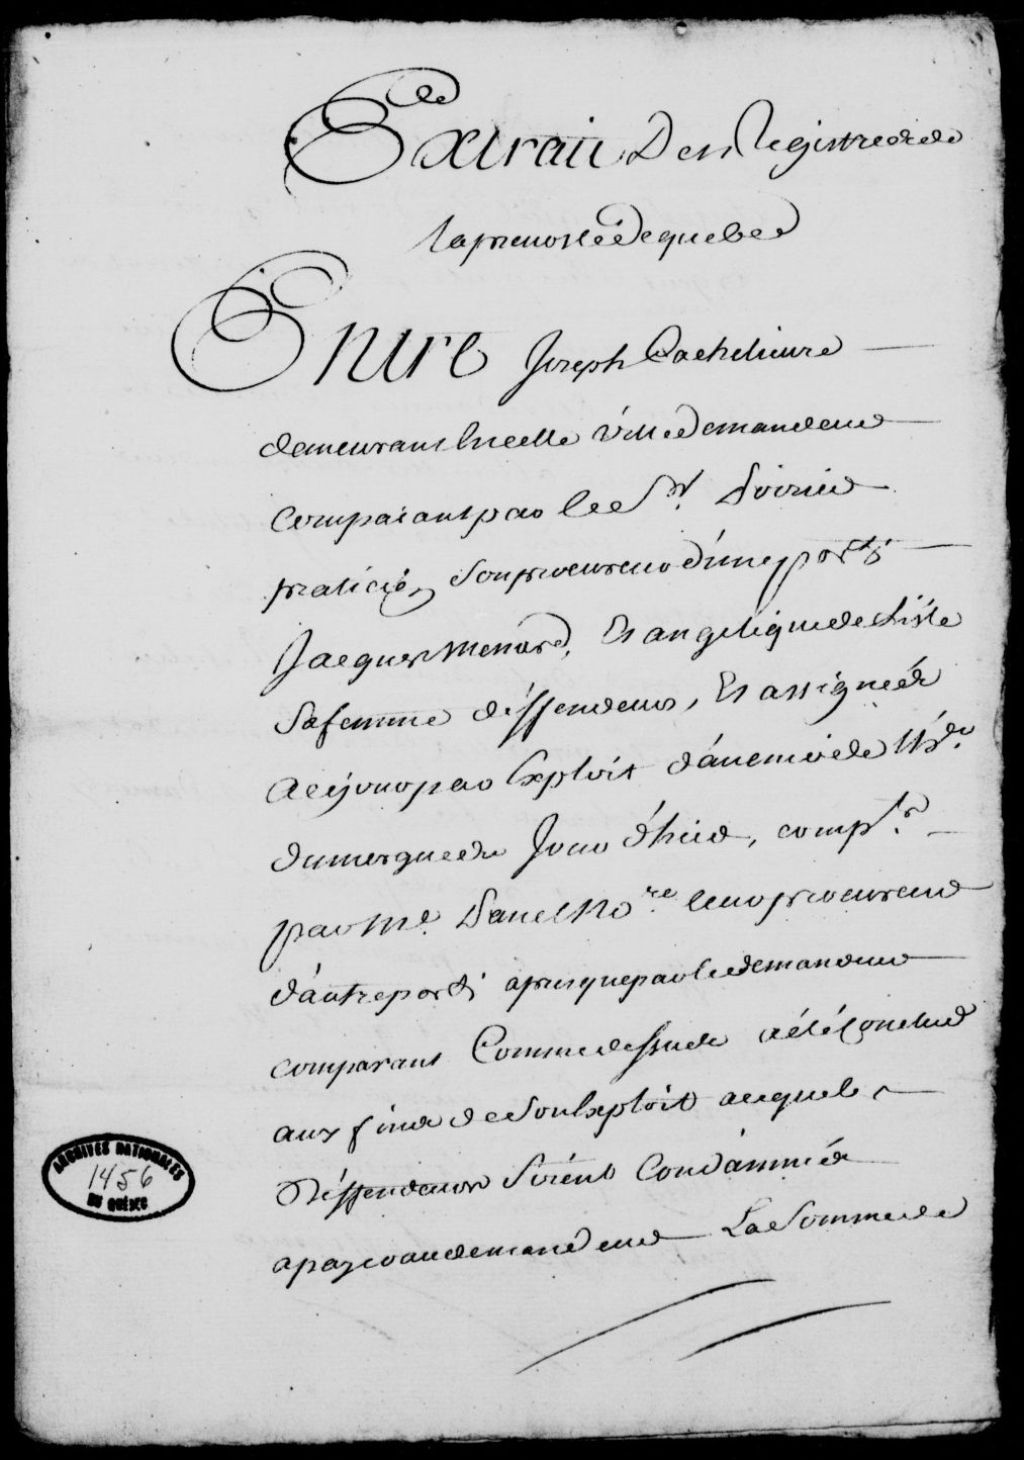 Extrait Des Registres de
la prevosté de quebec
Entre Joseph Cachelievre
demeurant En cette ville demandeur
comparant par le Sr.
praticien son procureur d'une part
Jacques Menard, Et angelique de Lisle
sa femme déffendeurs, Et assignés
a ce jour par Exploit d'ancien de
du jour d'hier, comp.
par Me. Panet No.re leur procureur
d'autre part aprés que par le demandeur
comparant Comme dessus a été conclud
aux fins de son Exploit a ce que les
Déffendeurs soient Condamnés
a payer au demandeur La somme de
ARCHIVES NATIONALES
1456
DU QUÉBEC